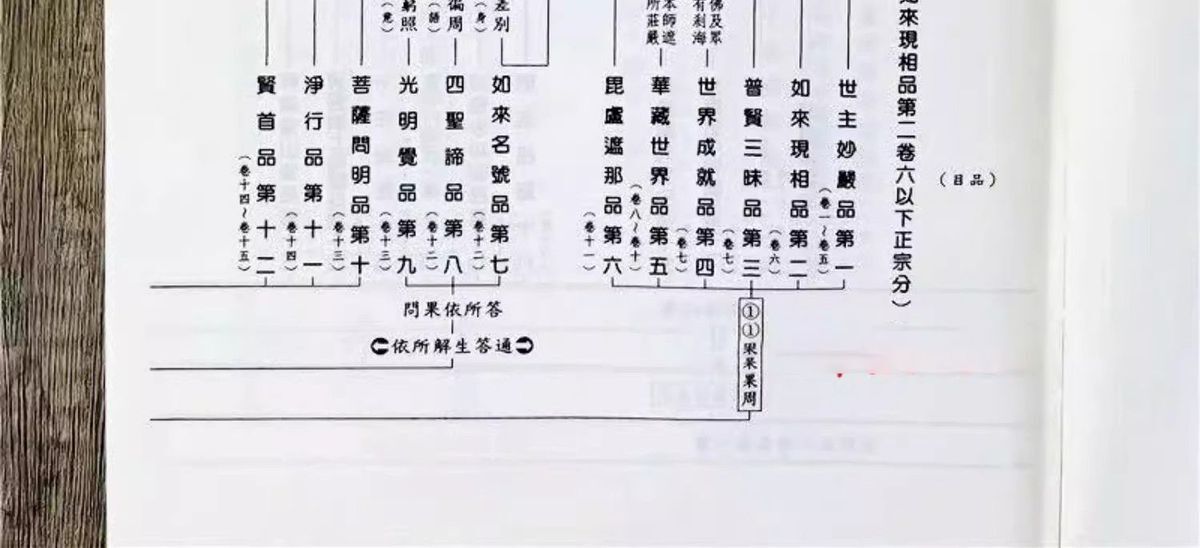 （目品）
來現相品第二卷六以下正宗分）
世主妙嚴品第一
（卷一～卷五）
如來現相品第二
（卷六）
普賢三昧品第三
（卷七）
佛及眾
有刹海
世界成就品第四
（卷七）
本師遮
所莊嚴
華藏世界品第五
（卷八～卷十）
毘盧遮那品第六
（卷十一）
①①
果周
差別
（身）
如來名號品第七
（卷十二）
徧周
（語）
四聖諦品第八
（卷十二）
照
（意）
光明覺品第九
（卷十三）
問果依所答
依所解生答通
菩薩問明品第十
（卷十三）
淨行品第十一
（卷十四）
賢首品第十二
（卷十四～卷十五）